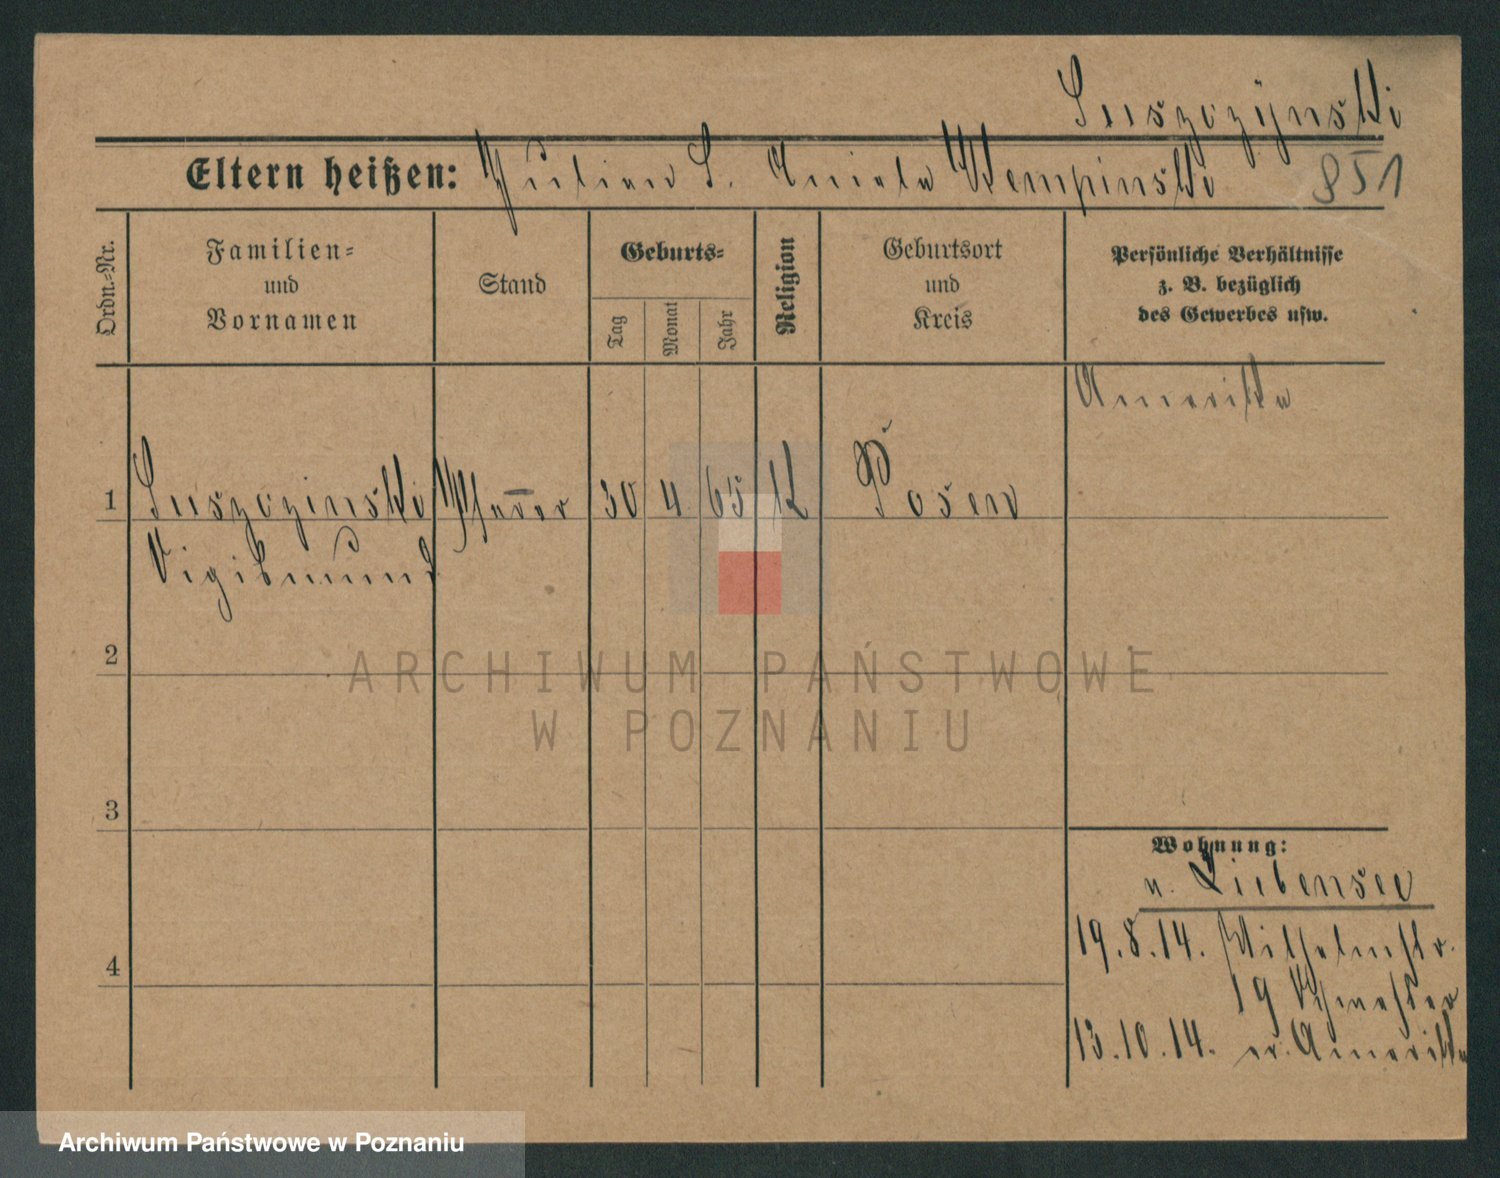 Suszczynski
Eltern heißen: Julian S. Aniela Kempinski
851
Ordn.-Nr.
Familien-
und
Vornamen
Stand
Geburts-
Tag
Monat
Jahr
Religion
Geburtsort
und
Kreis
Persönliche Verhältnisse
z. B. bezüglich
des Gewerbes usw.
Amerika
1 Suszczinski Pfarrer 30 4 65 K Posen
Sigismund
2
ARCHIWUM PAŃSTWOWE
W POZNANIU
3
Wohnung:
v. Liebensee
4
19.8.14. Wilhelmstr.
19 Schwester
13.10.14. Amerika
Archiwum Państwowe w Poznaniu